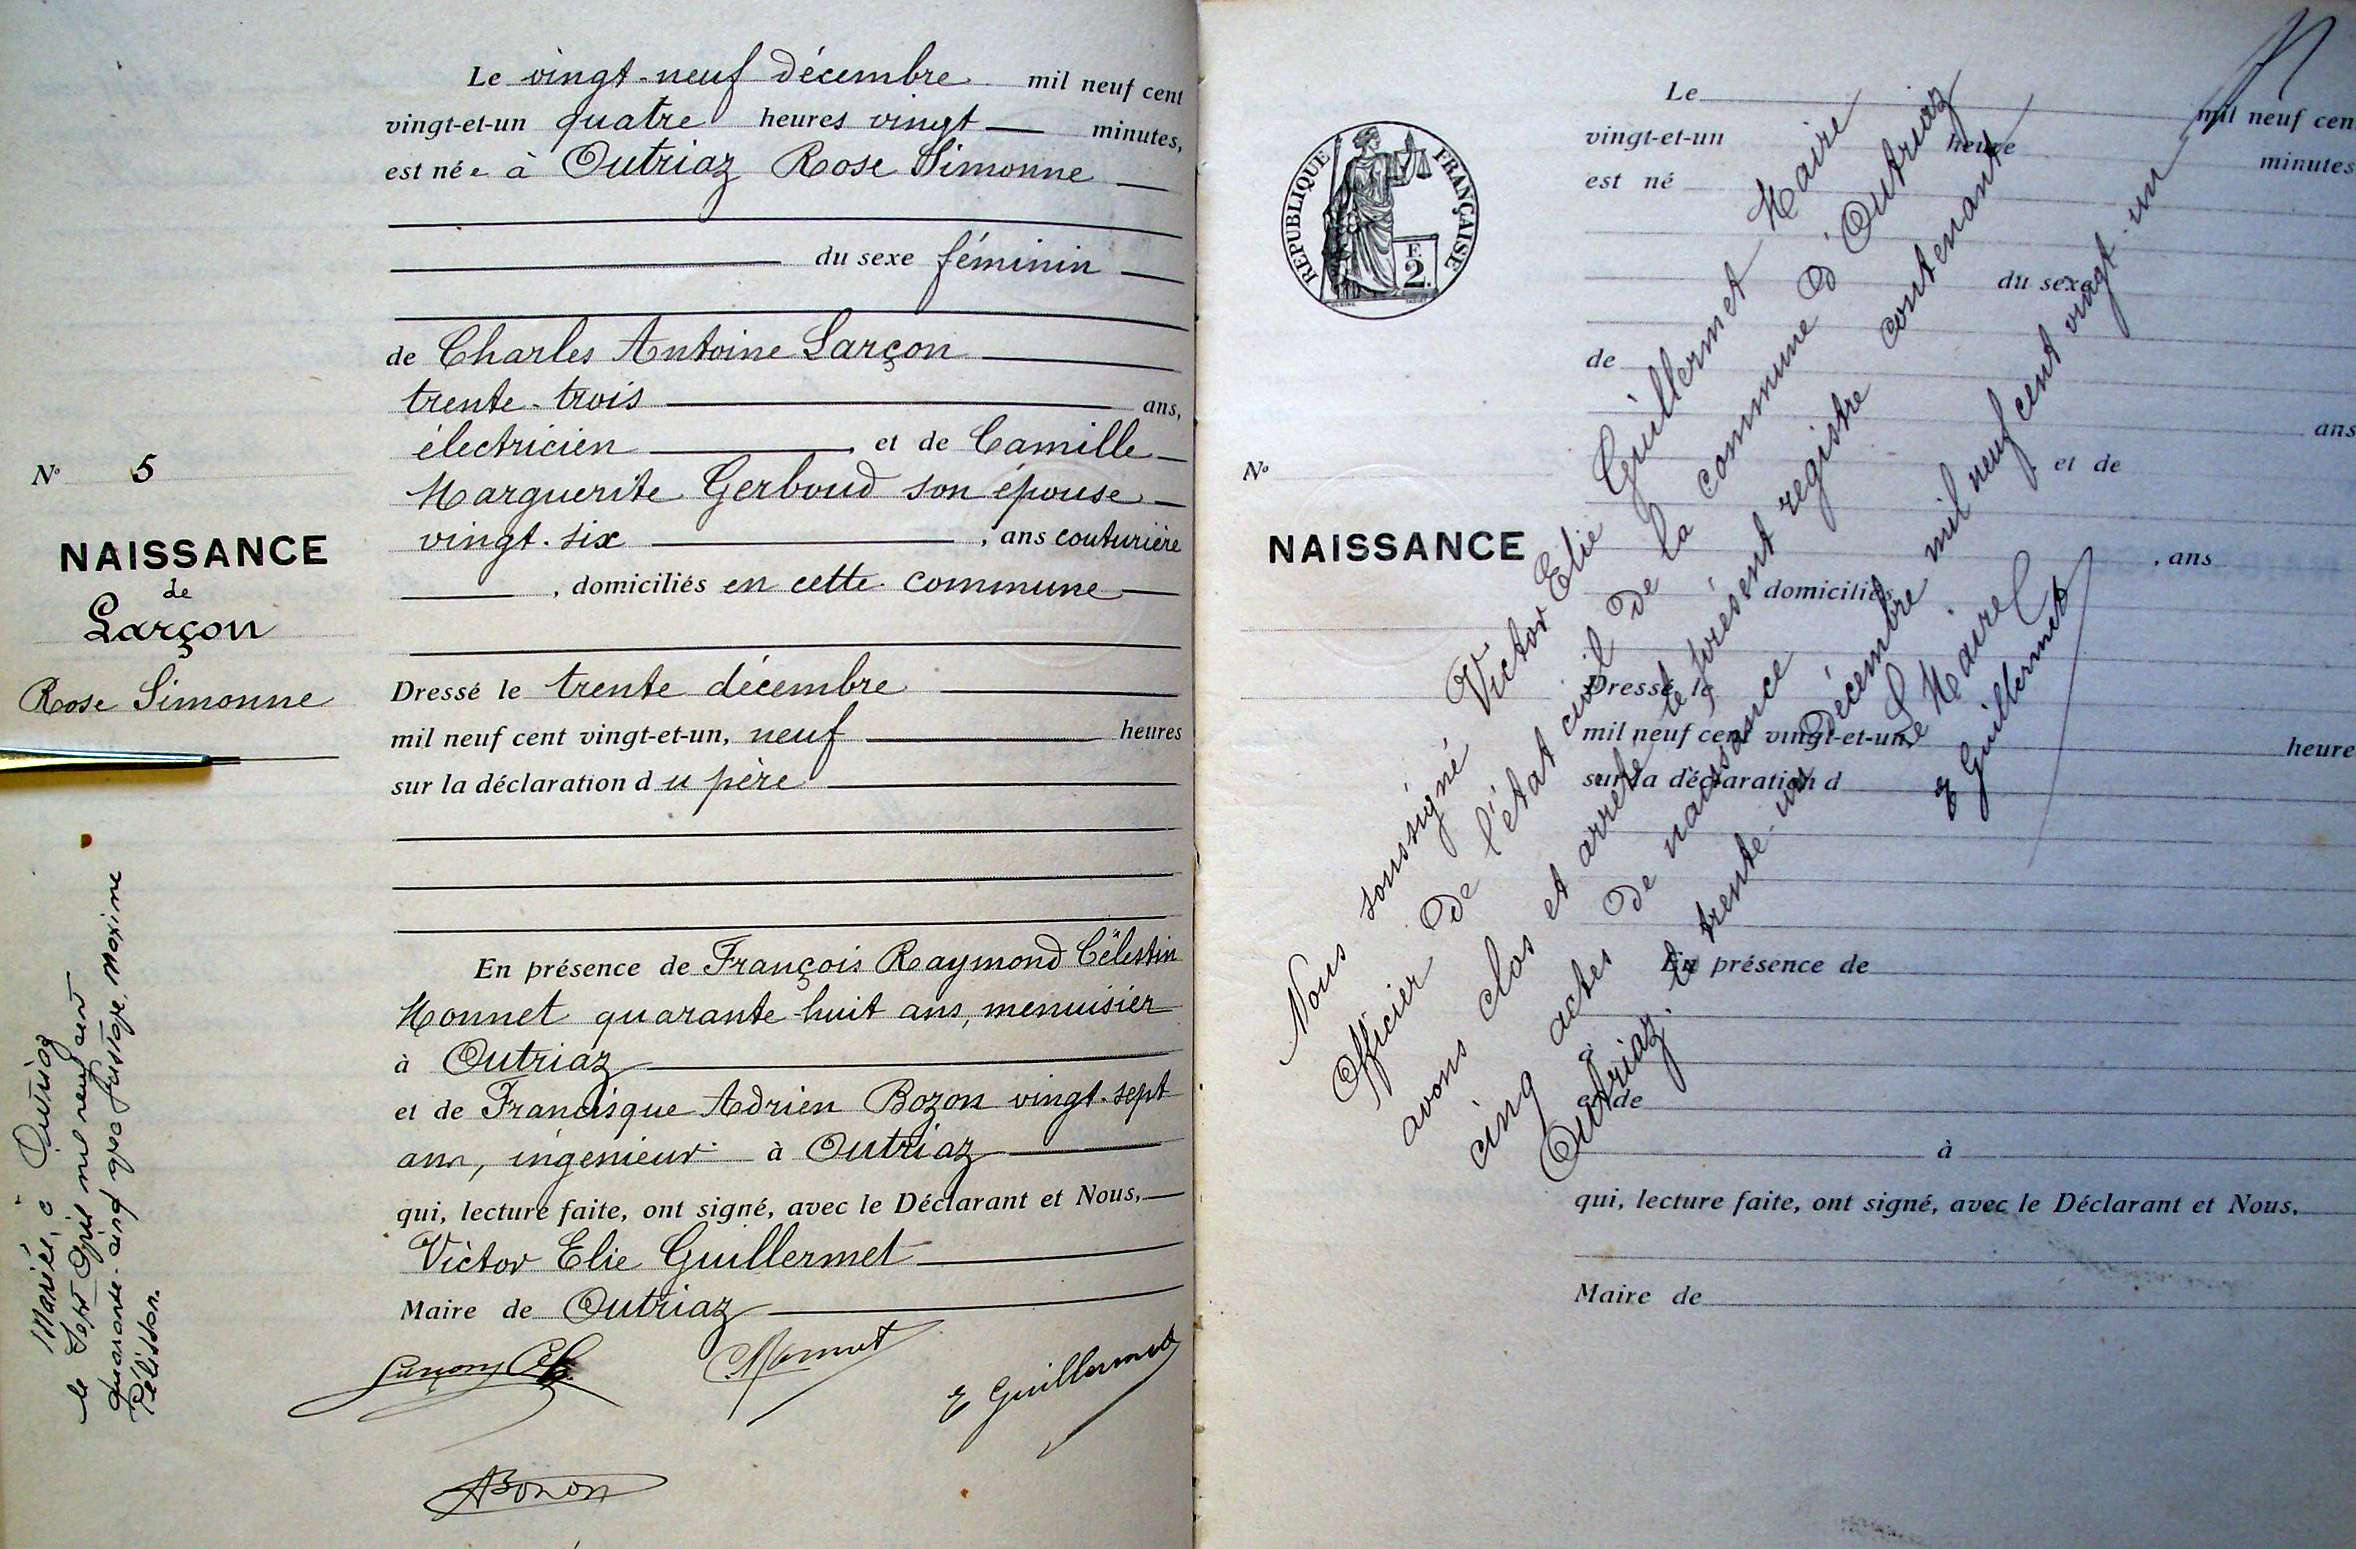 Le vingt-neuf décembre mil neuf cent
vingt-et-un quatre heures vingt minutes,
est née à Outriaz Rose Simonne
du sexe féminin
de Charles Antoine Larçon
trente-trois ans,
électricien et de Camille
Marguerite Gerboud son épouse
vingt-six , ans couturière
, domiciliés en cette commune
Dressé le trente décembre
mil neuf cent vingt-et-un, neuf heures
sur la déclaration du père
En présence de François Raymond Célestin
Monnet quarante-huit ans, menuisier
à Outriaz
et de Francisque Adrien Bozon vingt-sept
ans, ingénieur à Outriaz
qui, lecture faite, ont signé, avec le Déclarant et Nous,
Victor Elie Guillermet
Maire de Outriaz
Monnet
E Guillermet
ABozon
No 5
NAISSANCE
de
Larçon
Rose Simonne
Mariée à Outriaz
le sept Avril mil neuf cent
quarante-cinq avec Gustave, Maxime
Pélisson.
RÉPUBLIQUE FRANÇAISE
F.
2.
No
NAISSANCE
Le mil neuf cen
vingt-et-un heure minutes
est né
du sexe
de
ans
et de
, ans
domiciliés
Dressé le
mil neuf cent vingt-et-un, heure
sur la déclaration d
En présence de
à
et de
à
qui, lecture faite, ont signé, avec le Déclarant et Nous,
Maire de
Nous soussigné Victor Elie Guillermet Maire
Officier de l'état civil de la commune d'Outriaz
avons clos et arrêté le présent registre contenant
cinq actes de naissance
Outriaz. le trente-un Décembre mil neuf cent vingt-un
Le Maire
E Guillermet